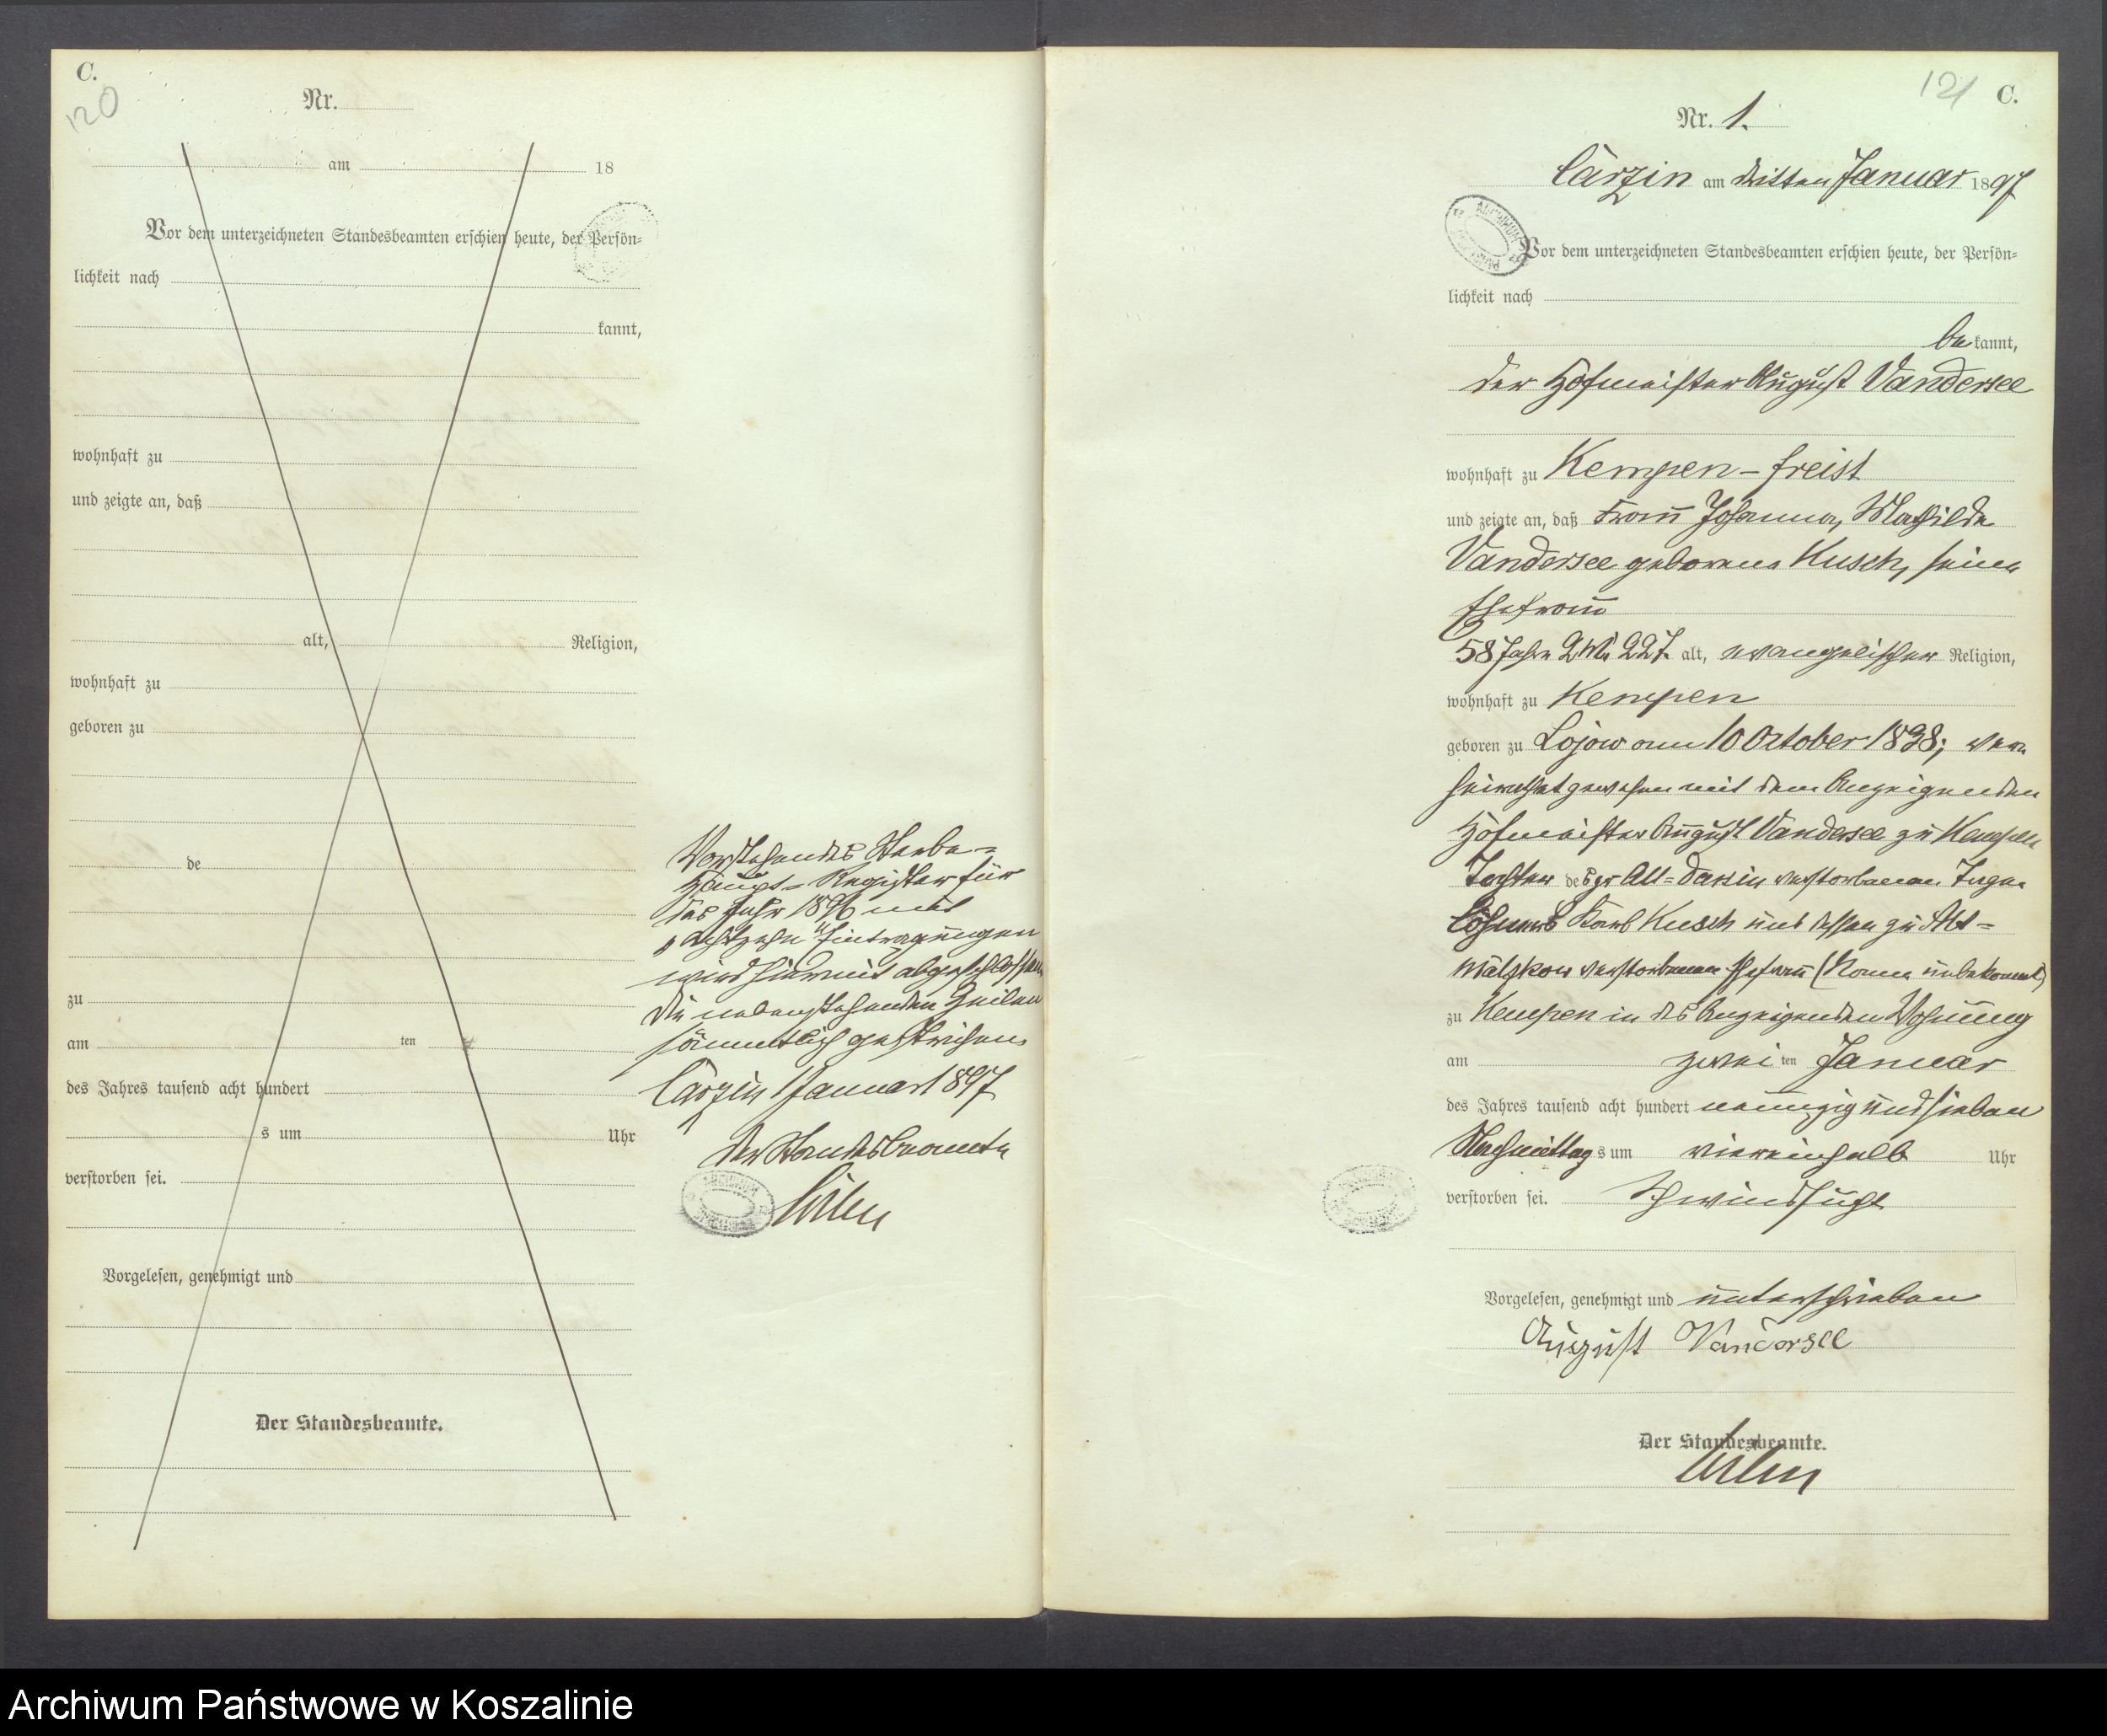 C.
120
Nr.
am 18
Vor dem unterzeichneten Standesbeamten erschien heute, der Persön-
lichkeit nach
kannt,
wohnhaft zu
und zeigte an, daß
alt, Religion,
wohnhaft zu
geboren zu
de
zu
am ten
des Jahres tausend acht hundert
s um Uhr
verstorben sei.
Vorgelesen, genehmigt und
Der Standesbeamte.
Vorstehendes Sterbe-
Haupt-Register für
das Jahr 1896 mit
achtzehn Eintragungen
wird hiermit abgeschlossen
Die nebenstehenden Zeilen
sämmtlich gestrichen
Carzin 1 Januar 1897
Der Standesbeamte
121 C.
Nr. 1.
Carzin am dritten Januar 1897
Vor dem unterzeichneten Standesbeamten erschien heute, der Persön-
lichkeit nach
be kannt,
der Hofmeister August Vandersee
wohnhaft zu Kempen-freist
und zeigte an, daß Frau Johanna, Mathilde
Vandersee geborene Kusch, seine
Ehefrau
58 Jahre 2 M. 22 T. alt, evangelischer Religion,
wohnhaft zu Kempen
geboren zu Lojow am 10 October 1838; ver-
heirathet gewesen mit dem Anzeigenden
Hofmeister August Vandersee zu Kempen
Tochter des zu Alt-Damin verstorbenen Tage
löhners Karl Kusch und dessen zu Alt-
Malzkow verstorbenen Ehefrau (Name unbekannt)
zu Kempen in des Anzeigenden Wohnung
am zwei ten Januar
des Jahres tausend acht hundert neunzig und sieben
Nachmittag s um viereinhalb Uhr
verstorben sei. Schwindsucht
Vorgelesen, genehmigt und unterschrieben
August Vandersee
Der Standesbeamte.
Archiwum Państwowe w Koszalinie